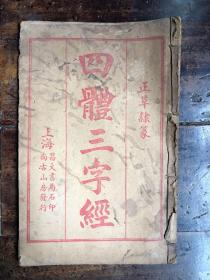 正草隸篆
四體三字經
上海
昌文書局石印
尚古山房發行